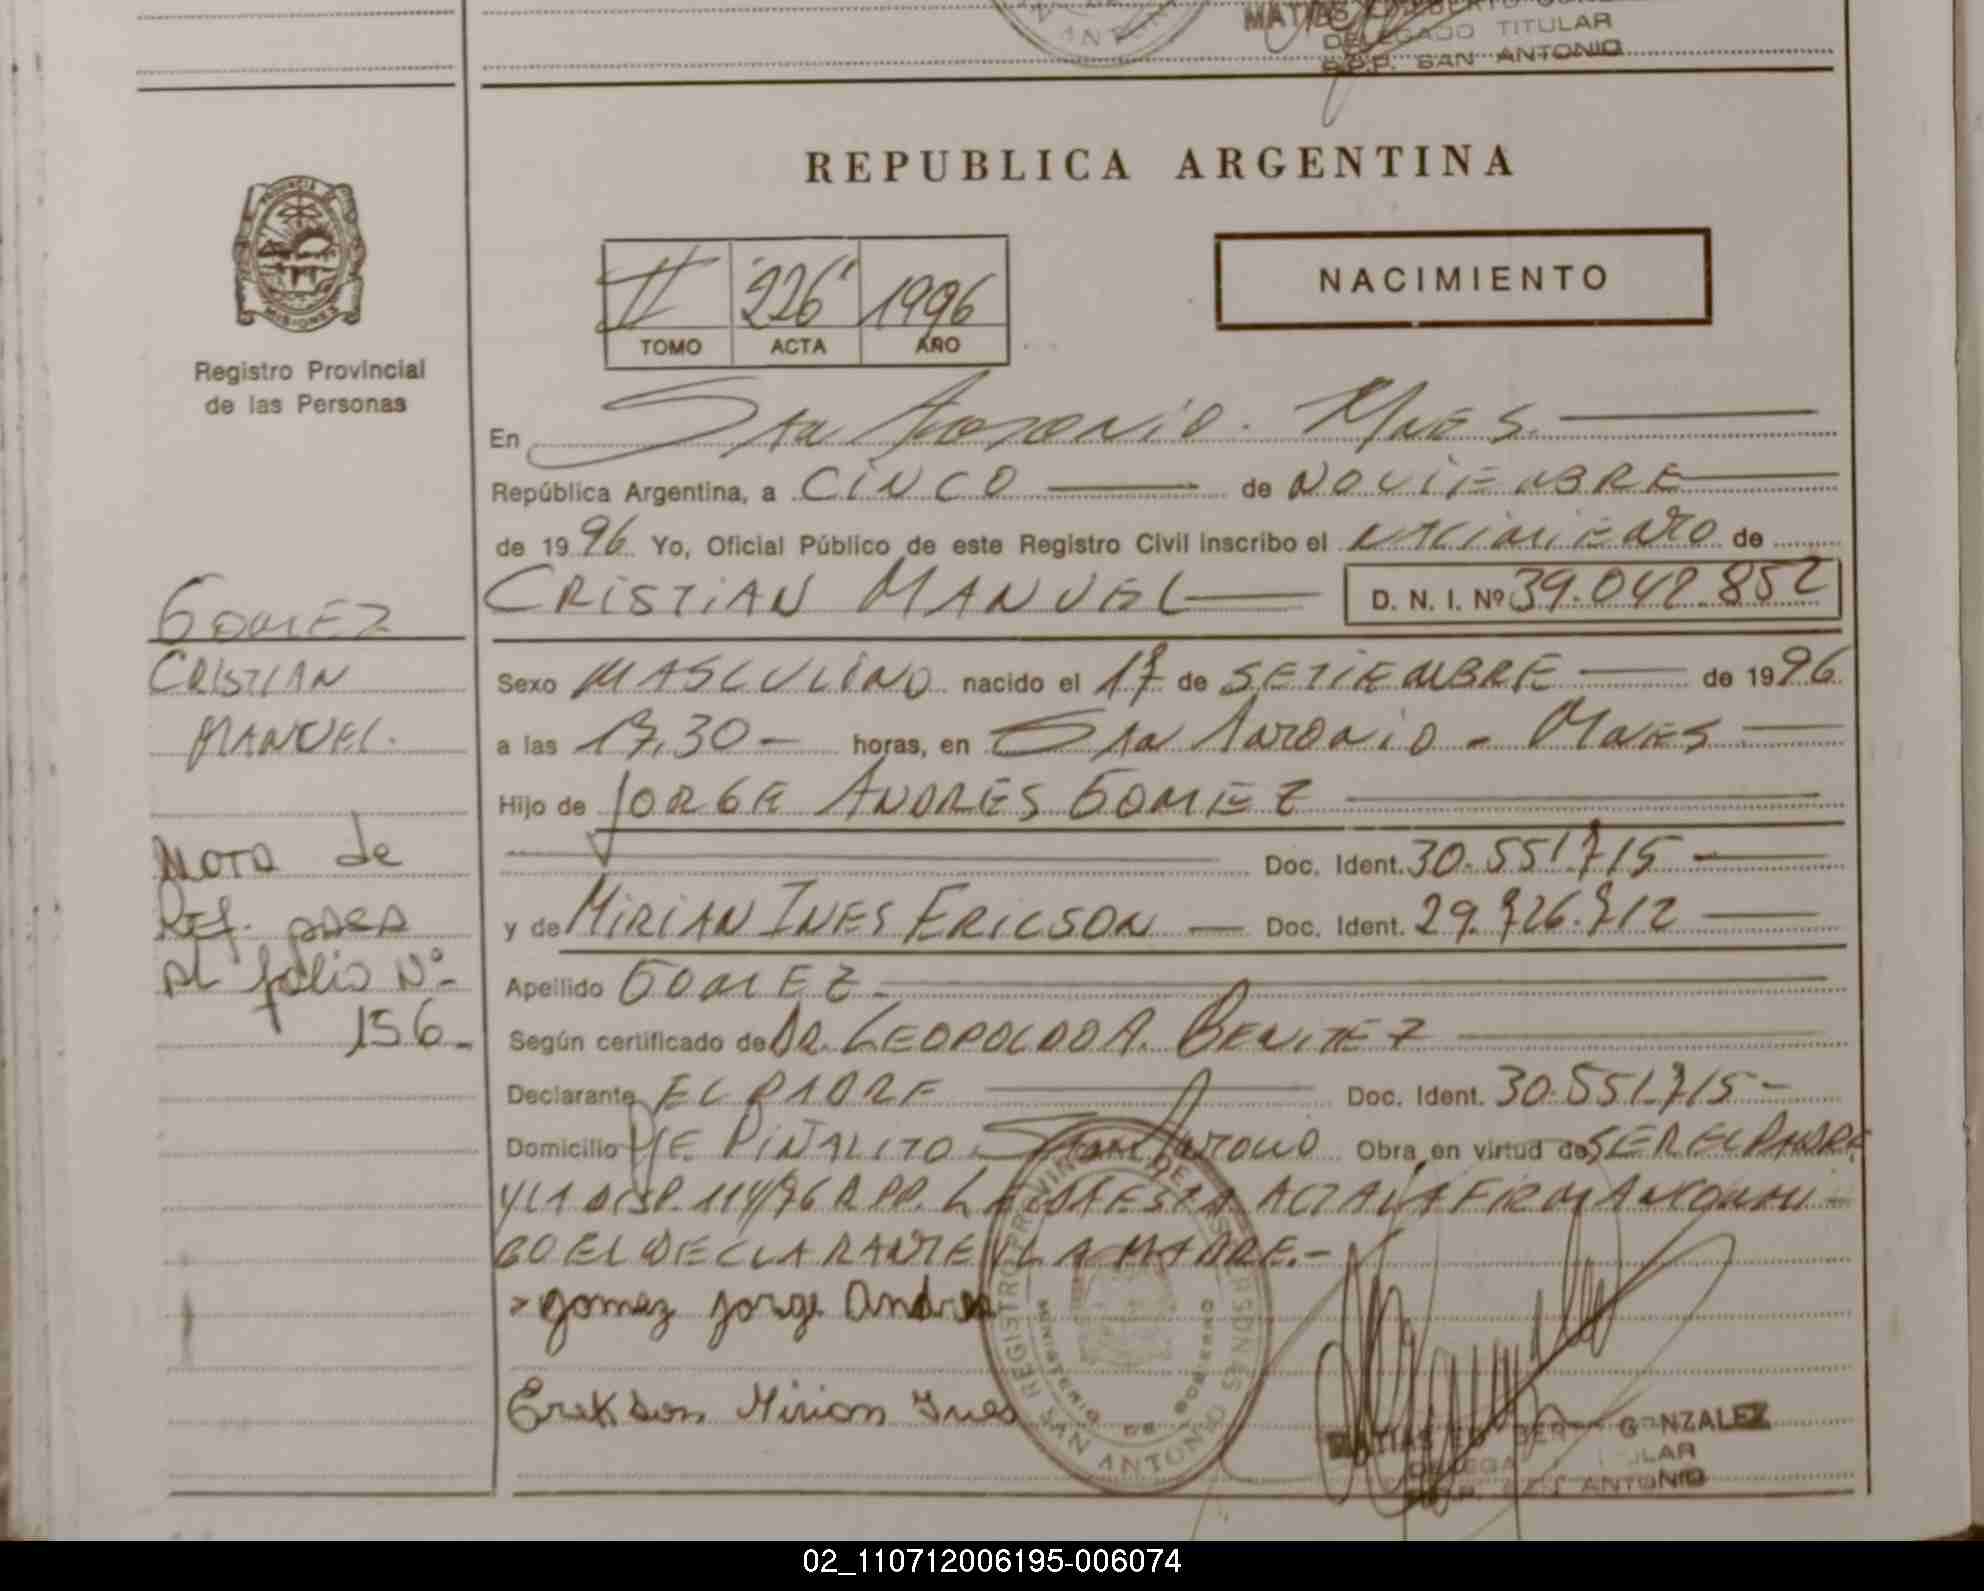 MATIAS
DELEGADO TITULAR
R.P.P. SAN ANTONIO
REPUBLICA ARGENTINA
PROVINCIA DE
MISIONES
Registro Provincial
de las Personas
II 226 1996
TOMO ACTA AÑO
NACIMIENTO
En San Antonio. Mnes.
República Argentina, a CINCO de NOVIEMBRE
de 1996 Yo, Oficial Público de este Registro Civil inscribo el NACIMIENTO de
CRISTIAN MANUEL D. N. I. Nº 39.042.852
GOMEZ
CRISTIAN
MANUEL.
Sexo MASCULINO nacido el 17 de SETIEMBRE de 1996
a las 17,30 - horas, en San Antonio - Mnes
Hijo de JORGE ANDRES GOMEZ
Doc. Ident. 30.551.715
y de MIRIAN INES ERICSON Doc. Ident. 29.726.712
Apellido GOMEZ
Según certificado de DR. LEOPOLDO A. BENITEZ
Declarante EL PADRE Doc. Ident. 30.551.715-
Domicilio PJE PIÑALITO San Antonio Obra en virtud de SER EL PADRE
Y LA DISP. 114/96 RPP. LEIDA ESTA ACTA LA FIRMAN CONMI
GO EL DECLARANTE Y LA MADRE.-
Nota de
Ref. pasa
al folio Nº
156-
gomez jorge Andres
Erikson Mirian Ines
REGISTRO PROVINCIAL DE LAS PERSONAS
MINISTERIO DE GOBIERNO
SAN ANTONIO
MATIAS GONZALEZ
R.P.P. SAN ANTONIO
02_110712006195-006074